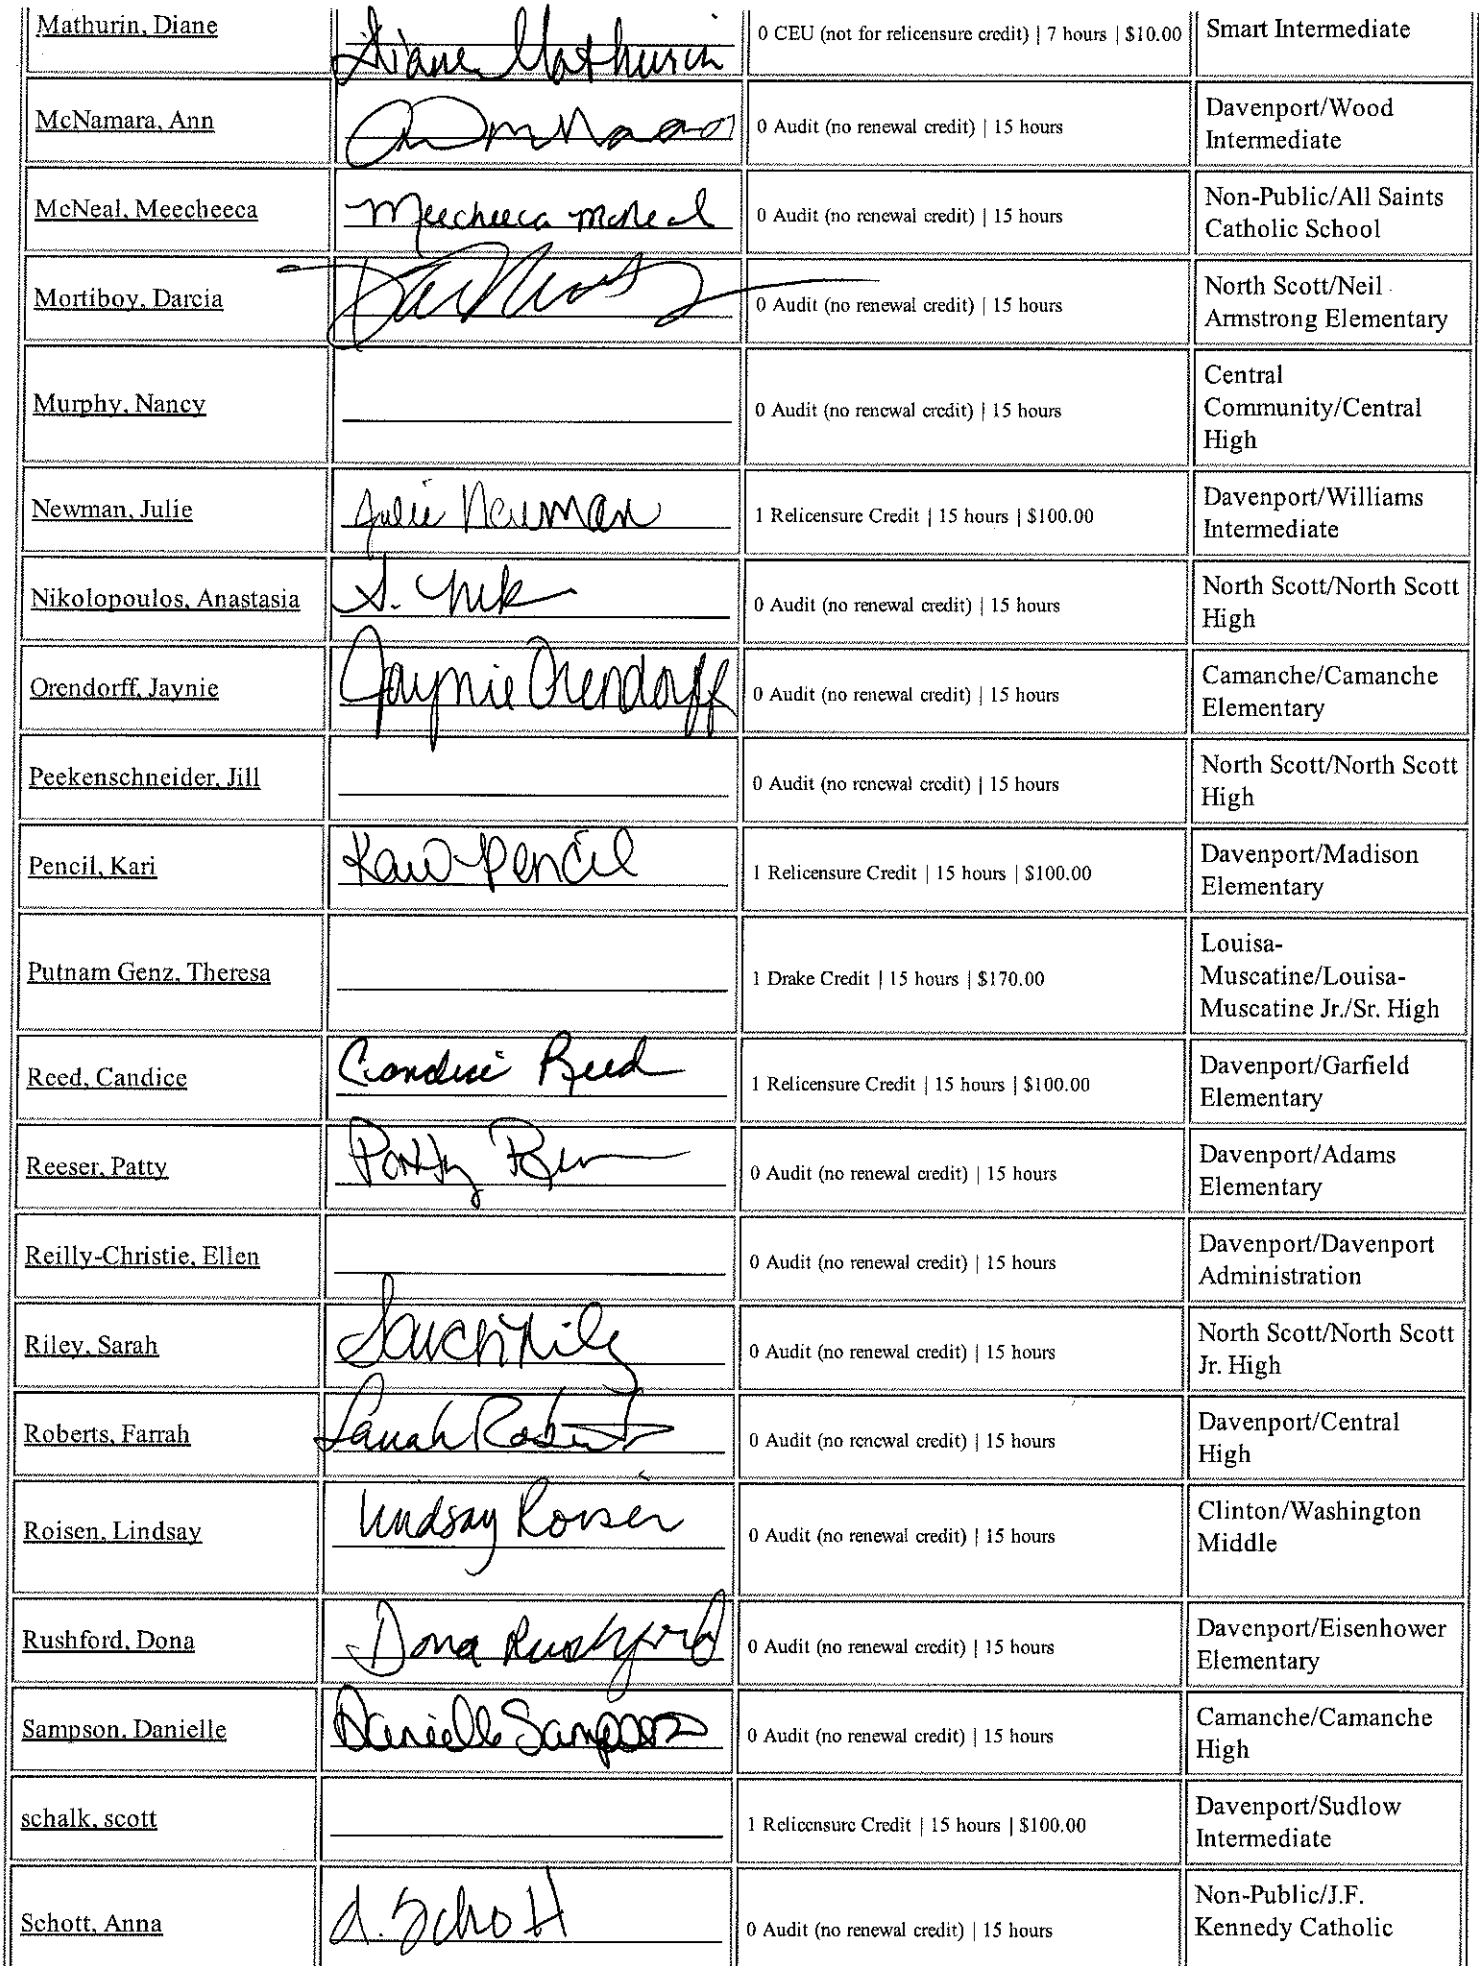 Mathurin, Diane
Diane Mathurin
0 CEU (not for relicensure credit) | 7 hours | $10.00
Smart Intermediate
McNamara, Ann
0 Audit (no renewal credit) | 15 hours
Davenport/Wood
Intermediate
McNeal, Meecheeca
Meecheeca McNeal
0 Audit (no renewal credit) | 15 hours
Non-Public/All Saints
Catholic School
Mortiboy, Darcia
0 Audit (no renewal credit) | 15 hours
North Scott/Neil
Armstrong Elementary
Murphy, Nancy
0 Audit (no renewal credit) | 15 hours
Central
Community/Central
High
Newman, Julie
Julie Newman
1 Relicensure Credit | 15 hours | $100.00
Davenport/Williams
Intermediate
Nikolopoulos, Anastasia
0 Audit (no renewal credit) | 15 hours
North Scott/North Scott
High
Orendorff, Jaynie
Jaynie Orendorff
0 Audit (no renewal credit) | 15 hours
Camanche/Camanche
Elementary
Peekenschneider, Jill
0 Audit (no renewal credit) | 15 hours
North Scott/North Scott
High
Pencil, Kari
Kari Pencil
1 Relicensure Credit | 15 hours | $100.00
Davenport/Madison
Elementary
Putnam Genz, Theresa
1 Drake Credit | 15 hours | $170.00
Louisa-
Muscatine/Louisa-
Muscatine Jr./Sr. High
Reed, Candice
Candice Reed
1 Relicensure Credit | 15 hours | $100.00
Davenport/Garfield
Elementary
Reeser, Patty
Patty
0 Audit (no renewal credit) | 15 hours
Davenport/Adams
Elementary
Reilly-Christie, Ellen
0 Audit (no renewal credit) | 15 hours
Davenport/Davenport
Administration
Riley, Sarah
Sarah Riley
0 Audit (no renewal credit) | 15 hours
North Scott/North Scott
Jr. High
Roberts, Farrah
Farrah Roberts
0 Audit (no renewal credit) | 15 hours
Davenport/Central
High
Roisen, Lindsay
Lindsay Roisen
0 Audit (no renewal credit) | 15 hours
Clinton/Washington
Middle
Rushford, Dona
Dona Rushford
0 Audit (no renewal credit) | 15 hours
Davenport/Eisenhower
Elementary
Sampson, Danielle
Danielle Sampson
0 Audit (no renewal credit) | 15 hours
Camanche/Camanche
High
schalk, scott
1 Relicensure Credit | 15 hours | $100.00
Davenport/Sudlow
Intermediate
Schott, Anna
A. Schott
0 Audit (no renewal credit) | 15 hours
Non-Public/J.F.
Kennedy Catholic